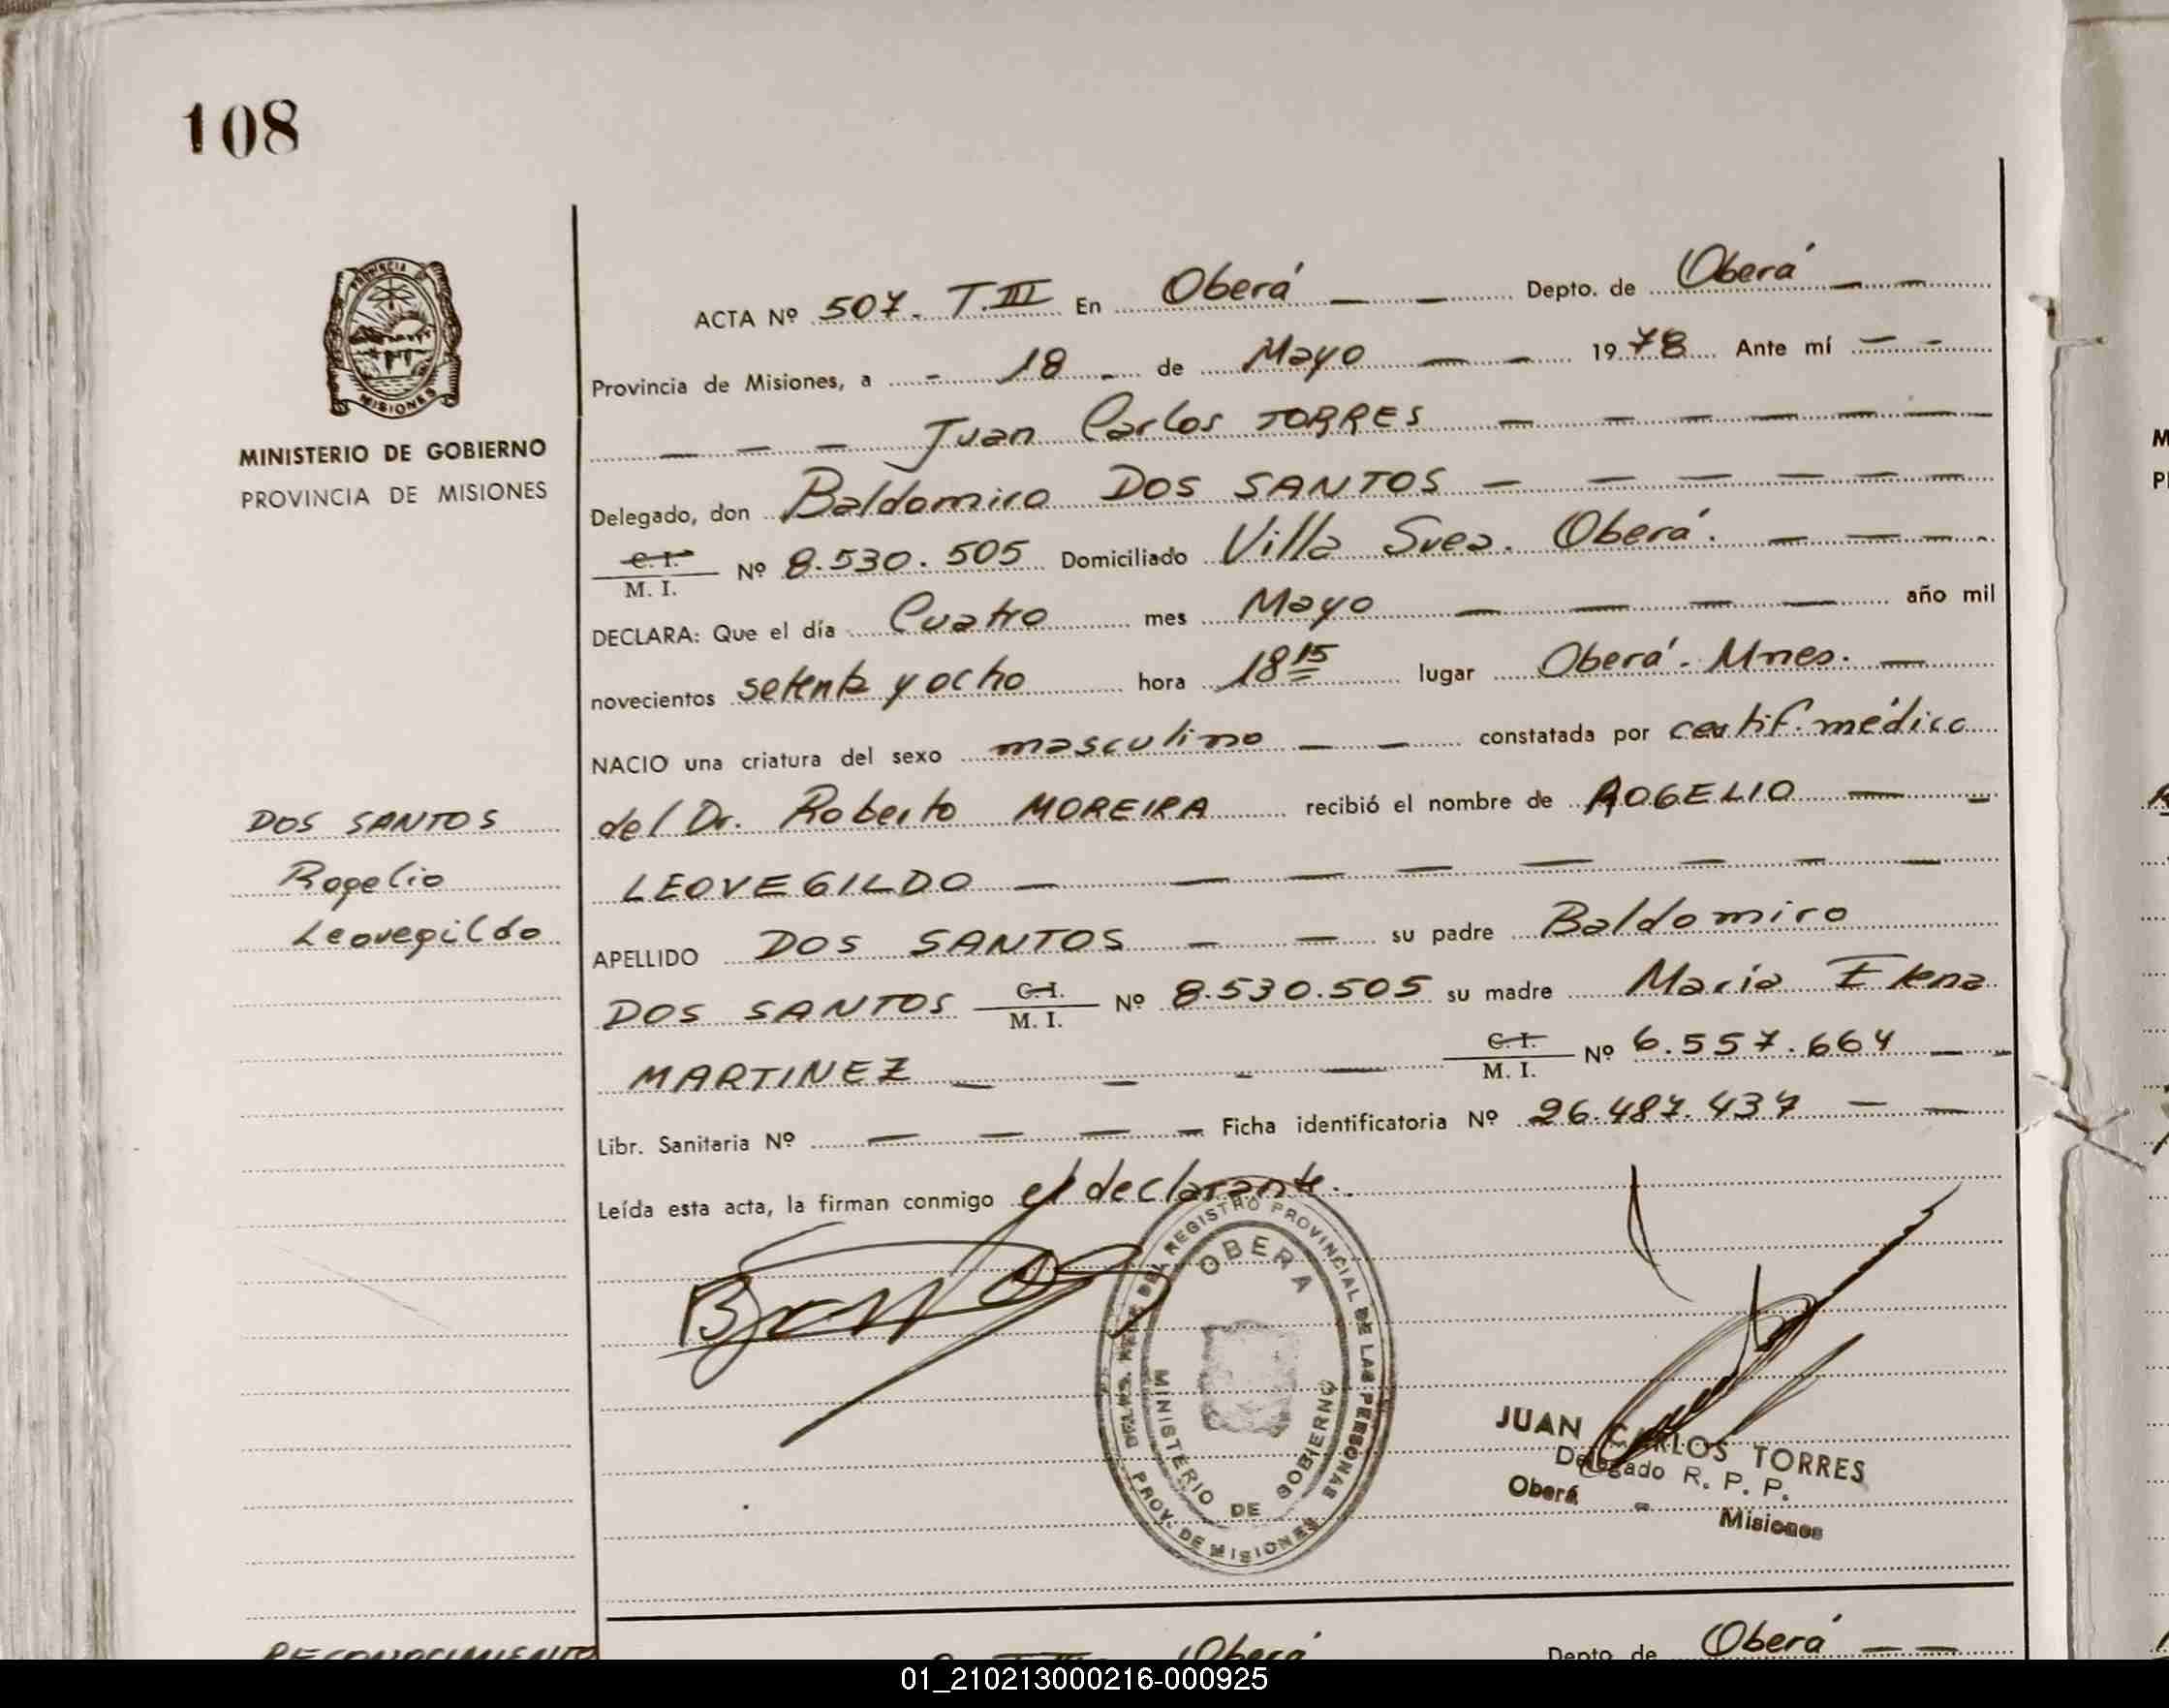 108
PROVINCIA DE
MISIONES
MINISTERIO DE GOBIERNO
PROVINCIA DE MISIONES
DOS SANTOS
Rogelio
Leovegildo
ACTA Nº 507. T.III En Oberá Depto. de Oberá
Provincia de Misiones, a 18 de Mayo 1978 Ante mí
Juan Carlos TORRES
Delegado, don Baldomiro DOS SANTOS
C. I.
M. I. Nº 8.530.505 Domiciliado Villa Svea. Oberá.
DECLARA: Que el día Cuatro mes Mayo año mil
novecientos setenta y ocho hora 18 15 lugar Oberá. Mnes.
NACIO una criatura del sexo masculino constatada por certif. médico
del Dr. Roberto MOREIRA recibió el nombre de ROGELIO
LEOVEGILDO
APELLIDO DOS SANTOS su padre Baldomiro
DOS SANTOS C. I. M. I. Nº 8.530.505 su madre María Elena
MARTINEZ C. I. M. I. Nº 6.557.664
Libr. Sanitaria Nº Ficha identificatoria Nº 26.487.437
Leída esta acta, la firman conmigo el declarante.
DEL REGISTRO PROVINCIAL DE LAS PERSONAS
OBERA
MINISTERIO DE GOBIERNO
PROV. DE MISIONES
JUAN CARLOS TORRES
Delegado R. P. P.
Oberá - Misiones
RECONOCIMIENTO
Oberá Depto. de Oberá
01_210213000216-000925